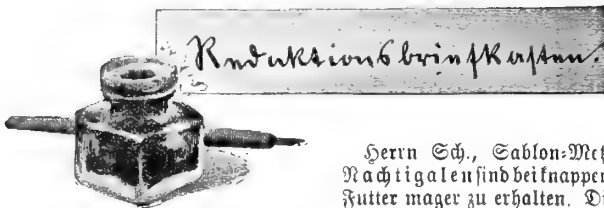 Redaktionsbriefkasten.
Herrn Sch., Sablon-Metz
Nachtigalen sind bei knappem
Futter mager zu erhalten. Di